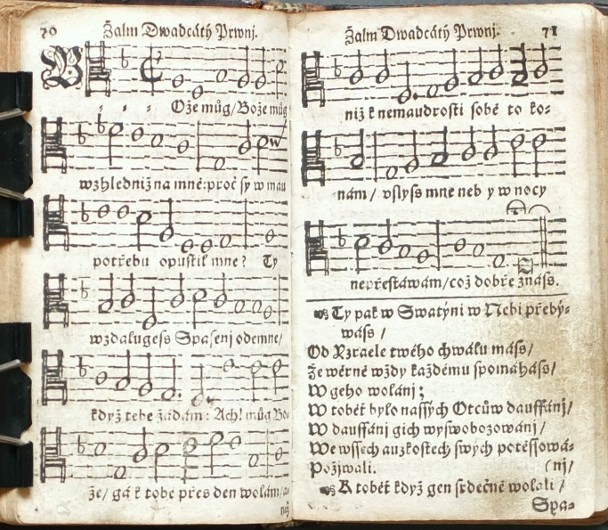 70 Žalm Dwadcátý Prwnj.
B
Ože můg/ Bože můg
wzhledniž na mně: proč sy w mau
potřebu opustil mne? Ty
wzdalugeſs Spaſenj odemne/
když tebe žádám: Ach! můg Bo
že/ gá k tobě přes den wolám/
niž
Žalm Dwadcátý Prwnj. 71
niž k nemaudroſti ſobě to ko-
nám/ vſlyſs mne neb y w nocy
nepřeſtáwám/ což dobře znáſs.
Ty pak w Swatyni w Nebi přebý-
wáſs /
Od Yzraele twého chwálu máſs/
Že wěrně wždy každému ſpomáháſs/
W geho wolánj:
W tobět bylo naſſých Otcůw dauffánj/
W dauffánj gich wyſwobozowánj/
We wſſech auzkoſtech ſwých potěſſowá-
Požjwali. (nj/
K tobět když gen ſrdečně wolali /
Spa-